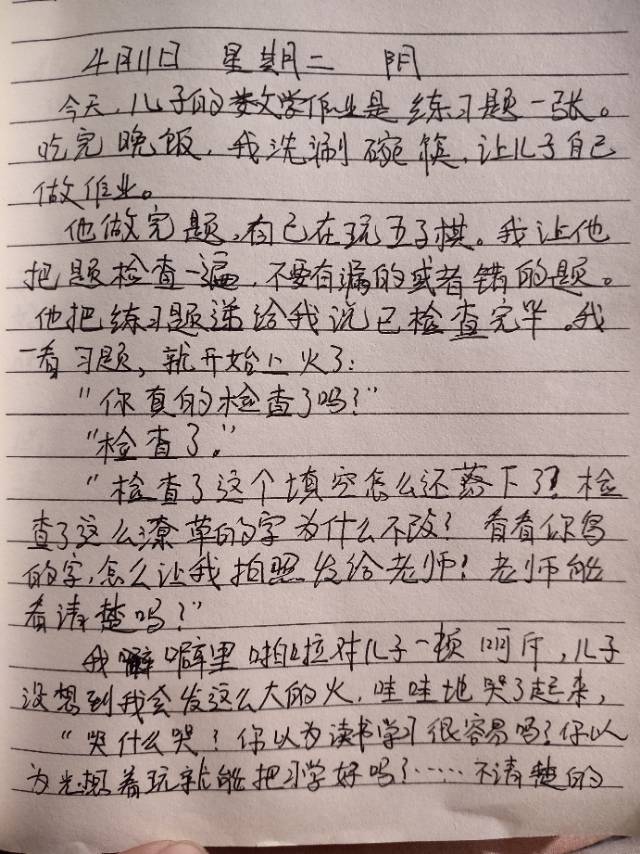 4月11日 星期二 阴
今天,儿子的数学作业是练习题一张。
吃完晚饭,我洗涮碗筷,让儿子自己
做作业。
他做完题,自己在玩五子棋。我让他
把题检查一遍,不要有漏的或者错的题。
他把练习题递给我说已检查完毕。我
一看习题,就开始上火了:
“你真的检查了吗?”
“检查了。”
“检查了这个填空怎么还落下了?检
查了这么潦草的字为什么不改?看看你写
的字,怎么让我拍照发给老师!老师能
看清楚吗?”
我噼里啪啦对儿子一顿呵斥,儿子
没想到我会发这么大的火,哇哇地哭了起来,
“哭什么哭?你以为读书学习很容易吗?你以
为光想着玩就能把习学好吗?……不清楚的